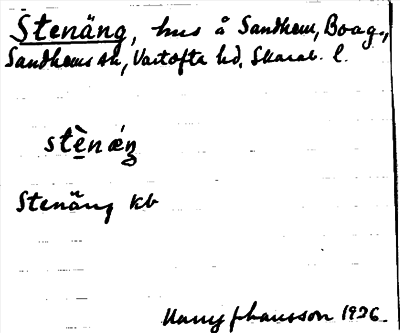 Stenäng, hus å Sandhem, Boag.,
Sandhems sn, Vartofta hd, Skarab. l.
stènǽŋ
Stenäng kb
Harry Johansson 1926.